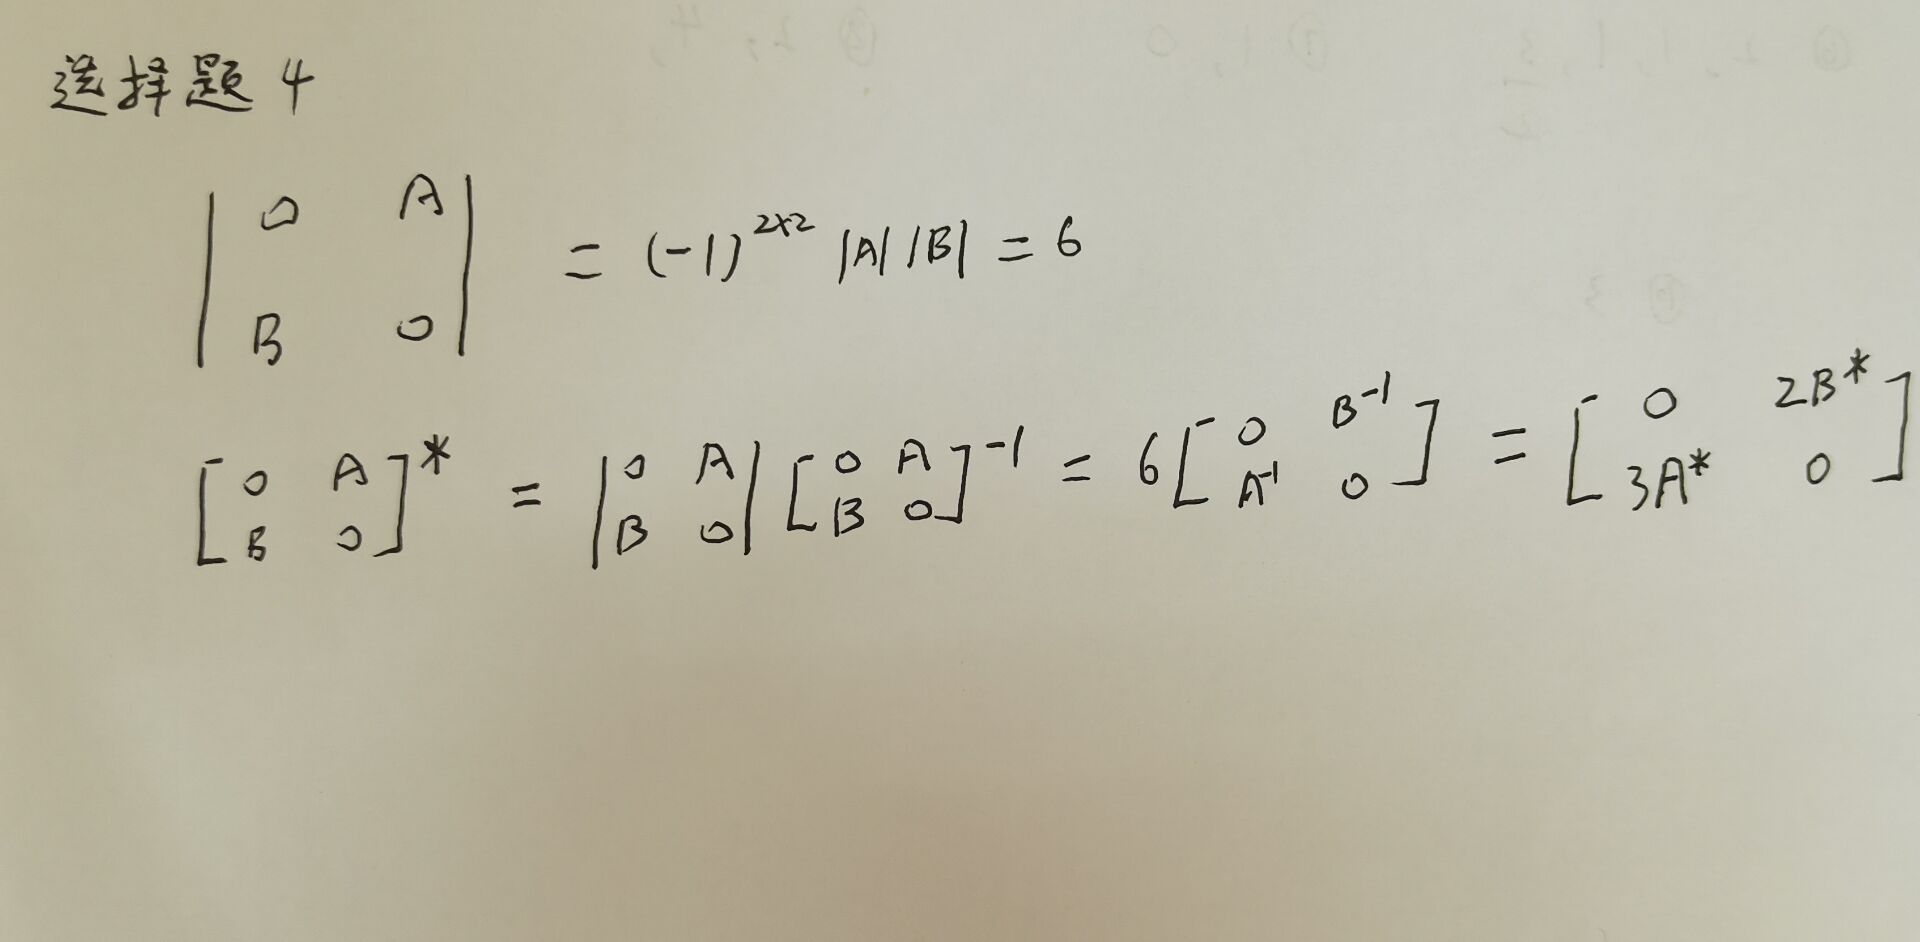 选择题 4
| 0 A |
| B 0 | = (-1)^{2×2} |A| |B| = 6
[ 0 A ; B 0 ]^* = | 0 A ; B 0 | [ 0 A ; B 0 ]^{-1} = 6 [ 0 B^{-1} ; A^{-1} 0 ] = [ 0 2B^* ; 3A^* 0 ]